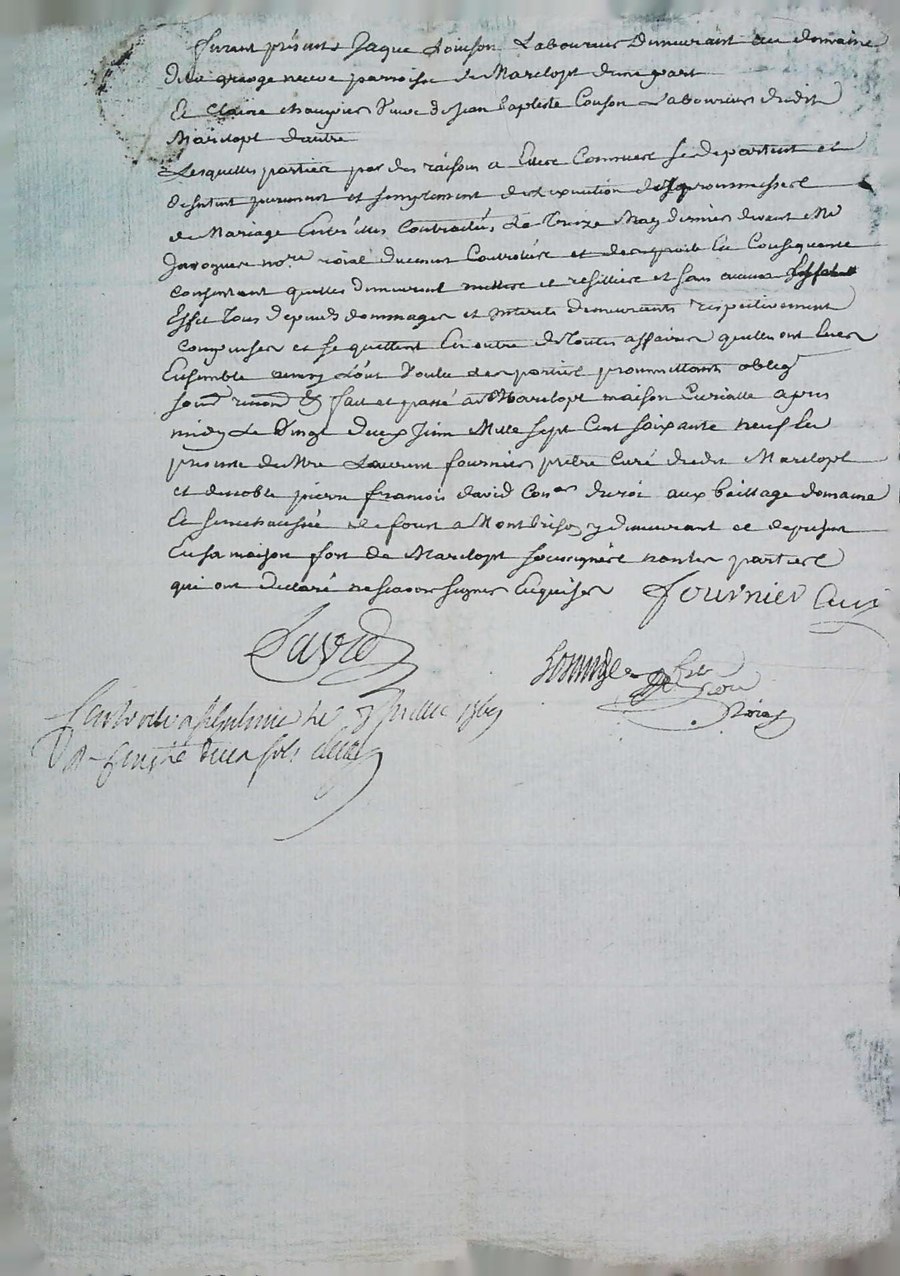 furent présents Jaque Couson Laboureur Demeurant au domaine
de la grange neuve parroisse de Marclopt d'une part
Et Claire chaupier veuve de Jean baptiste Couson Laboureur dudit
Marclopt d'autre
Lesquelles parties par des raisons a Elles Connues se departent et
desistent purement et simplement de l'execution des prommesses
de Mariage Entr'elles Contractés Le Treize May dernier devant Me
Javoguer nore roial duement Controlées et En Consequence
consentent quelles demeurent nulles et resilliées et sans aucun
Effet Tous depends dommages et interets demeurants respectivement
compensés et se quittent En outre de Toutes affaires quelles ont Eues
Ensemble ainsy L'ont voulu les parties promettants oblig
soum renond & fait et passé audt Marclopt maison Curialle apres
midy Le Vingt deux Juin Mille Sept Cent soixante neuf En
presence de Mre Laurent fournier prêtre Curé dudit Marclopt
et de noble pierre francois david Coner du roi aux baillage domaine
Et senechaussée de forest a Montbrison y demeurant et de present
En sa maison fort de Marclopt soussignés non les parties
qui ont declaré ne scavoir signer Enquises Fournier Curé
David
Controllé a le 3 juillet 1769
sols